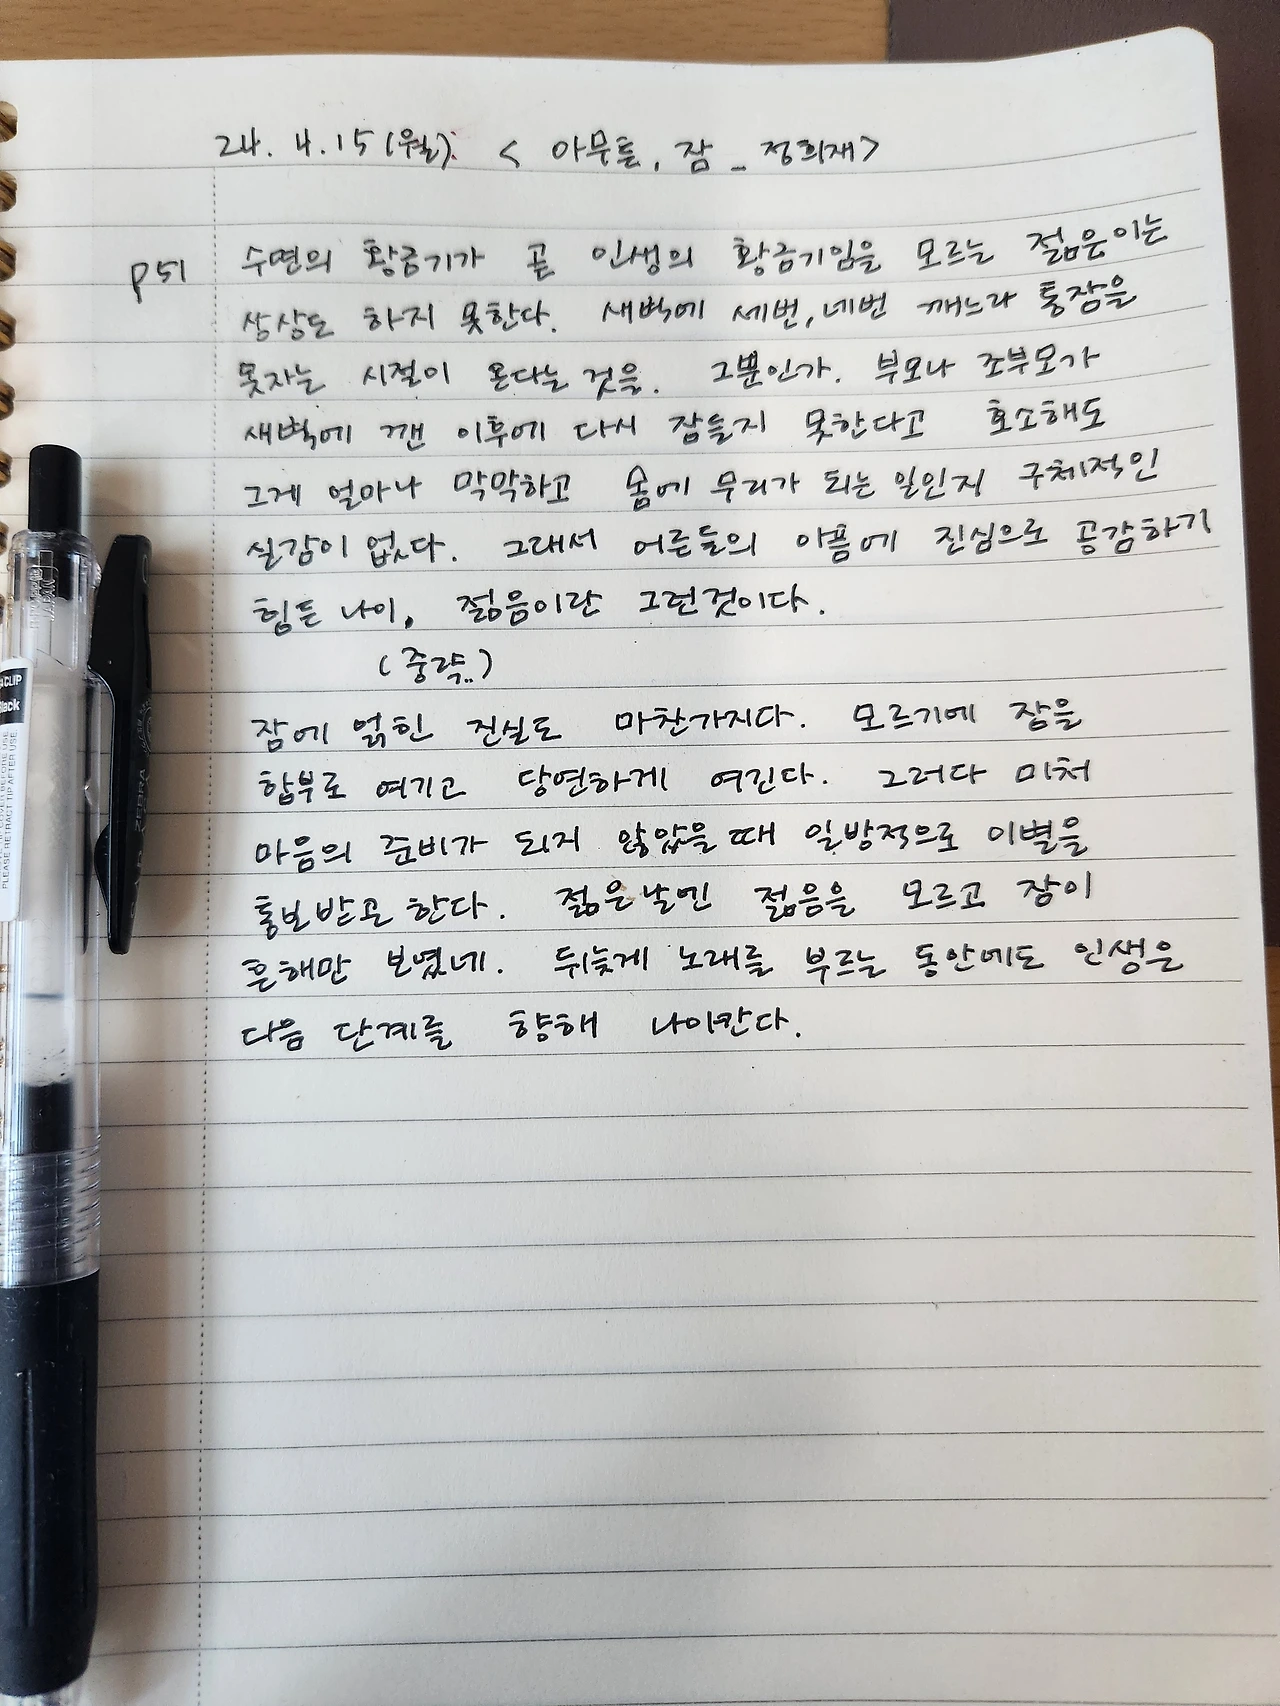 24. 4. 15 (월). < 아무튼, 잠 _ 정희재>
p51 수면의 황금기가 곧 인생의 황금기임을 모르는 젊은이는
상상도 하지 못한다. 새벽에 세번, 네번 깨느라 통잠을
못자는 시절이 온다는 것을. 그뿐인가. 부모나 조부모가
새벽에 깬 이후에 다시 잠들지 못한다고 호소해도
그게 얼마나 막막하고 몸에 무리가 되는 일인지 구체적인
실감이 없다. 그래서 어른들의 아픔에 진심으로 공감하기
힘든 나이, 젊음이란 그런것이다.
(중략..)
잠에 얽힌 진실도 마찬가지다. 모르기에 잠을
함부로 여기고 당연하게 여긴다. 그러다 미처
마음의 준비가 되지 않았을 때 일방적으로 이별을
통보받곤 한다. 젊은 날엔 젊음을 모르고 잠이
흔해만 보였네. 뒤늦게 노래를 부르는 동안에도 인생은
다음 단계를 향해 나아간다.
CLIP
Black
PLEASE RETRACT TIP AFTER USE.
ZEBRA
JAPAN